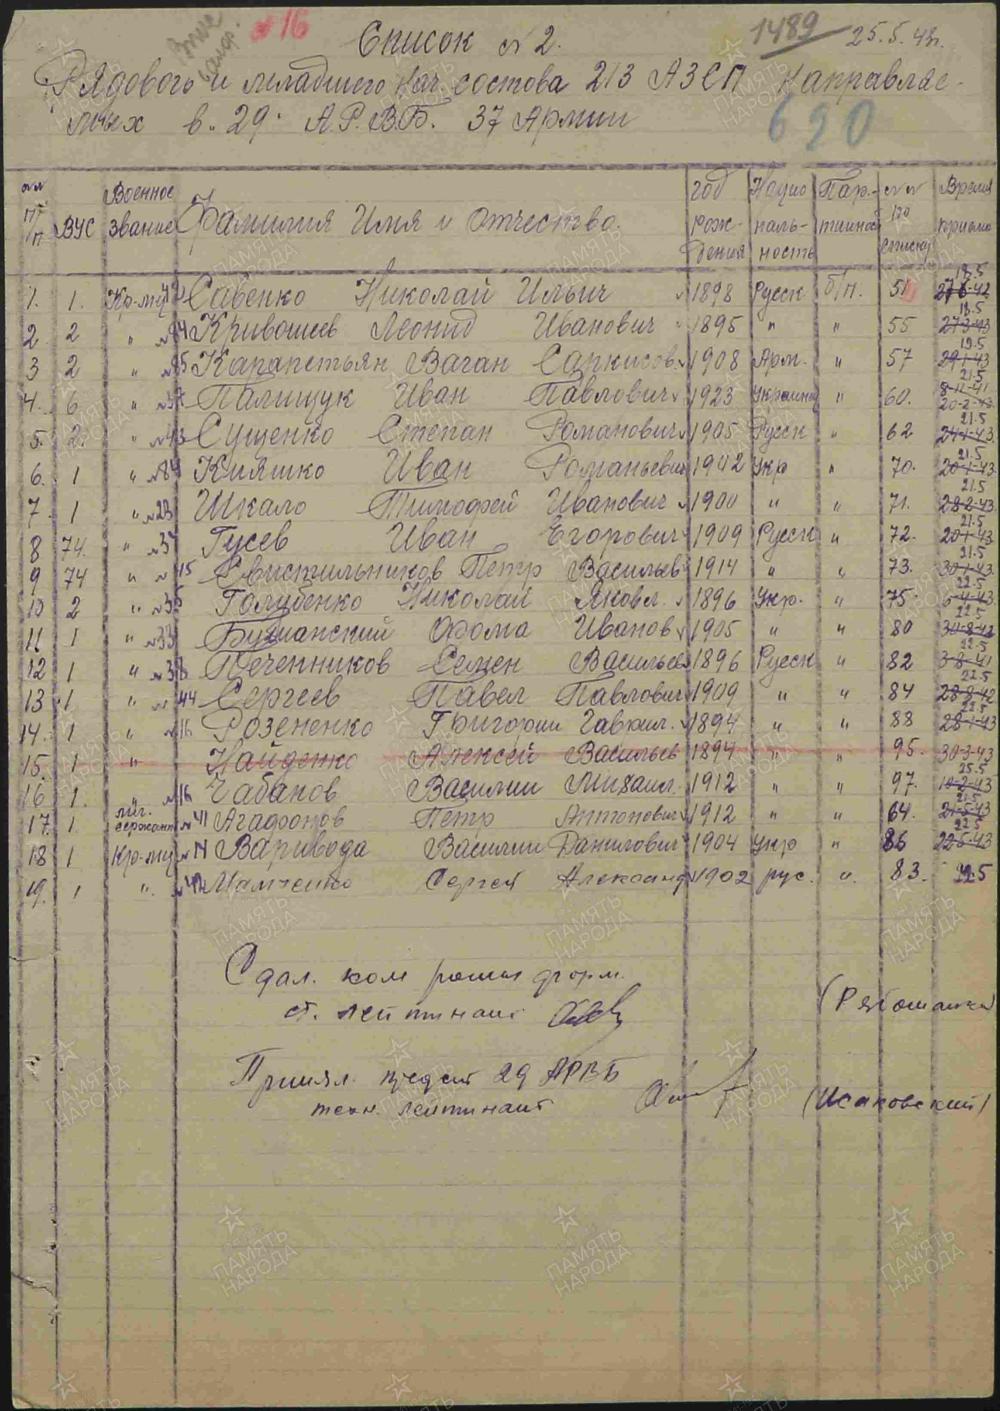 №16
1489
25.5.43г.
Список №2.
Рядового и младшего нач. состова 213 АЗСП направляе-
мых в. 29. А.Р.В.Б. 37 Армии
620
№№ п/п ВУС Военное звание Фамилия Имя и отчество. год рож-дения Нацио наль-ность Пар-тийност №№ по списку Время приема
1. 1. Кр-мц Савенко Николай Ильич 1898 Русск б/п. 51 18.5
2 2 " Кривошеев Леонид Иванович 1895 " " 55 18.5 27-3-43
3 2 " Карапетьян Ваган Саркисов. 1908 Арм. " 57 19.5 29-1-43
4. 6 " Палищук Иван Павлович 1923 Украинец " 60. 21.5 20-2-43
5. 2. " №43 Сущенко Степан Романович 1905 Русск " 62 21.5 24-1-43
6. 1 " №84 Кияшко Иван Романьевич 1902 Укр " 70. 21.5 20-1-43
7. 1 " №23 Шкало Тимофей Иванович 1900 " " 71. 21.5 28-2-43
8 74. " Гусев Иван Егорович 1909 Русск " 72. 21.5 20-1-43
9 74 " №15 Свистильников Петр Васильев 1914 " " 73. 21.5 30-1-43
10 2 " №35 Голубенко Николай Яковл. 1896 Укр. " 75 22.5
11 1 " №33 Бушанский Фома Иванов 1905 " " 80 22.5 30-8-42
12 1 " №38 Печенников Семен Васильев 1896 Русск " 82 22.5 3-8-41
13 1 " №44 Сергеев Павел Павлович 1909 " " 84 22.5 28-8-42
14. 1 " №16 Розененко Григории Гаврил. 1894 " " 88 22.5 28-1-43
15. 1 " Найденко Алексей Васильев 1894 " " 95. 30-3-43
16 1. " №16 Чабанов Василии Михаил. 1912 " " 97. 25.5 10-2-43
17. 1. мл. сержант №41 Агафонов Петр Антонович 1912 " " 64. 21.5
18 1 Кр-мц Варивода Василии Данилович 1904 Укр " 86 22.5
19. 1 " Сергей Александ 1902 рус. " 83. 22.5
Сдал. ком роты форм.
ст. лейтинант (Рябошапка)
Принял. предст 29 АРВБ
техн. лейтинант (Исаковский)
ПАМЯТЬ НАРОДА